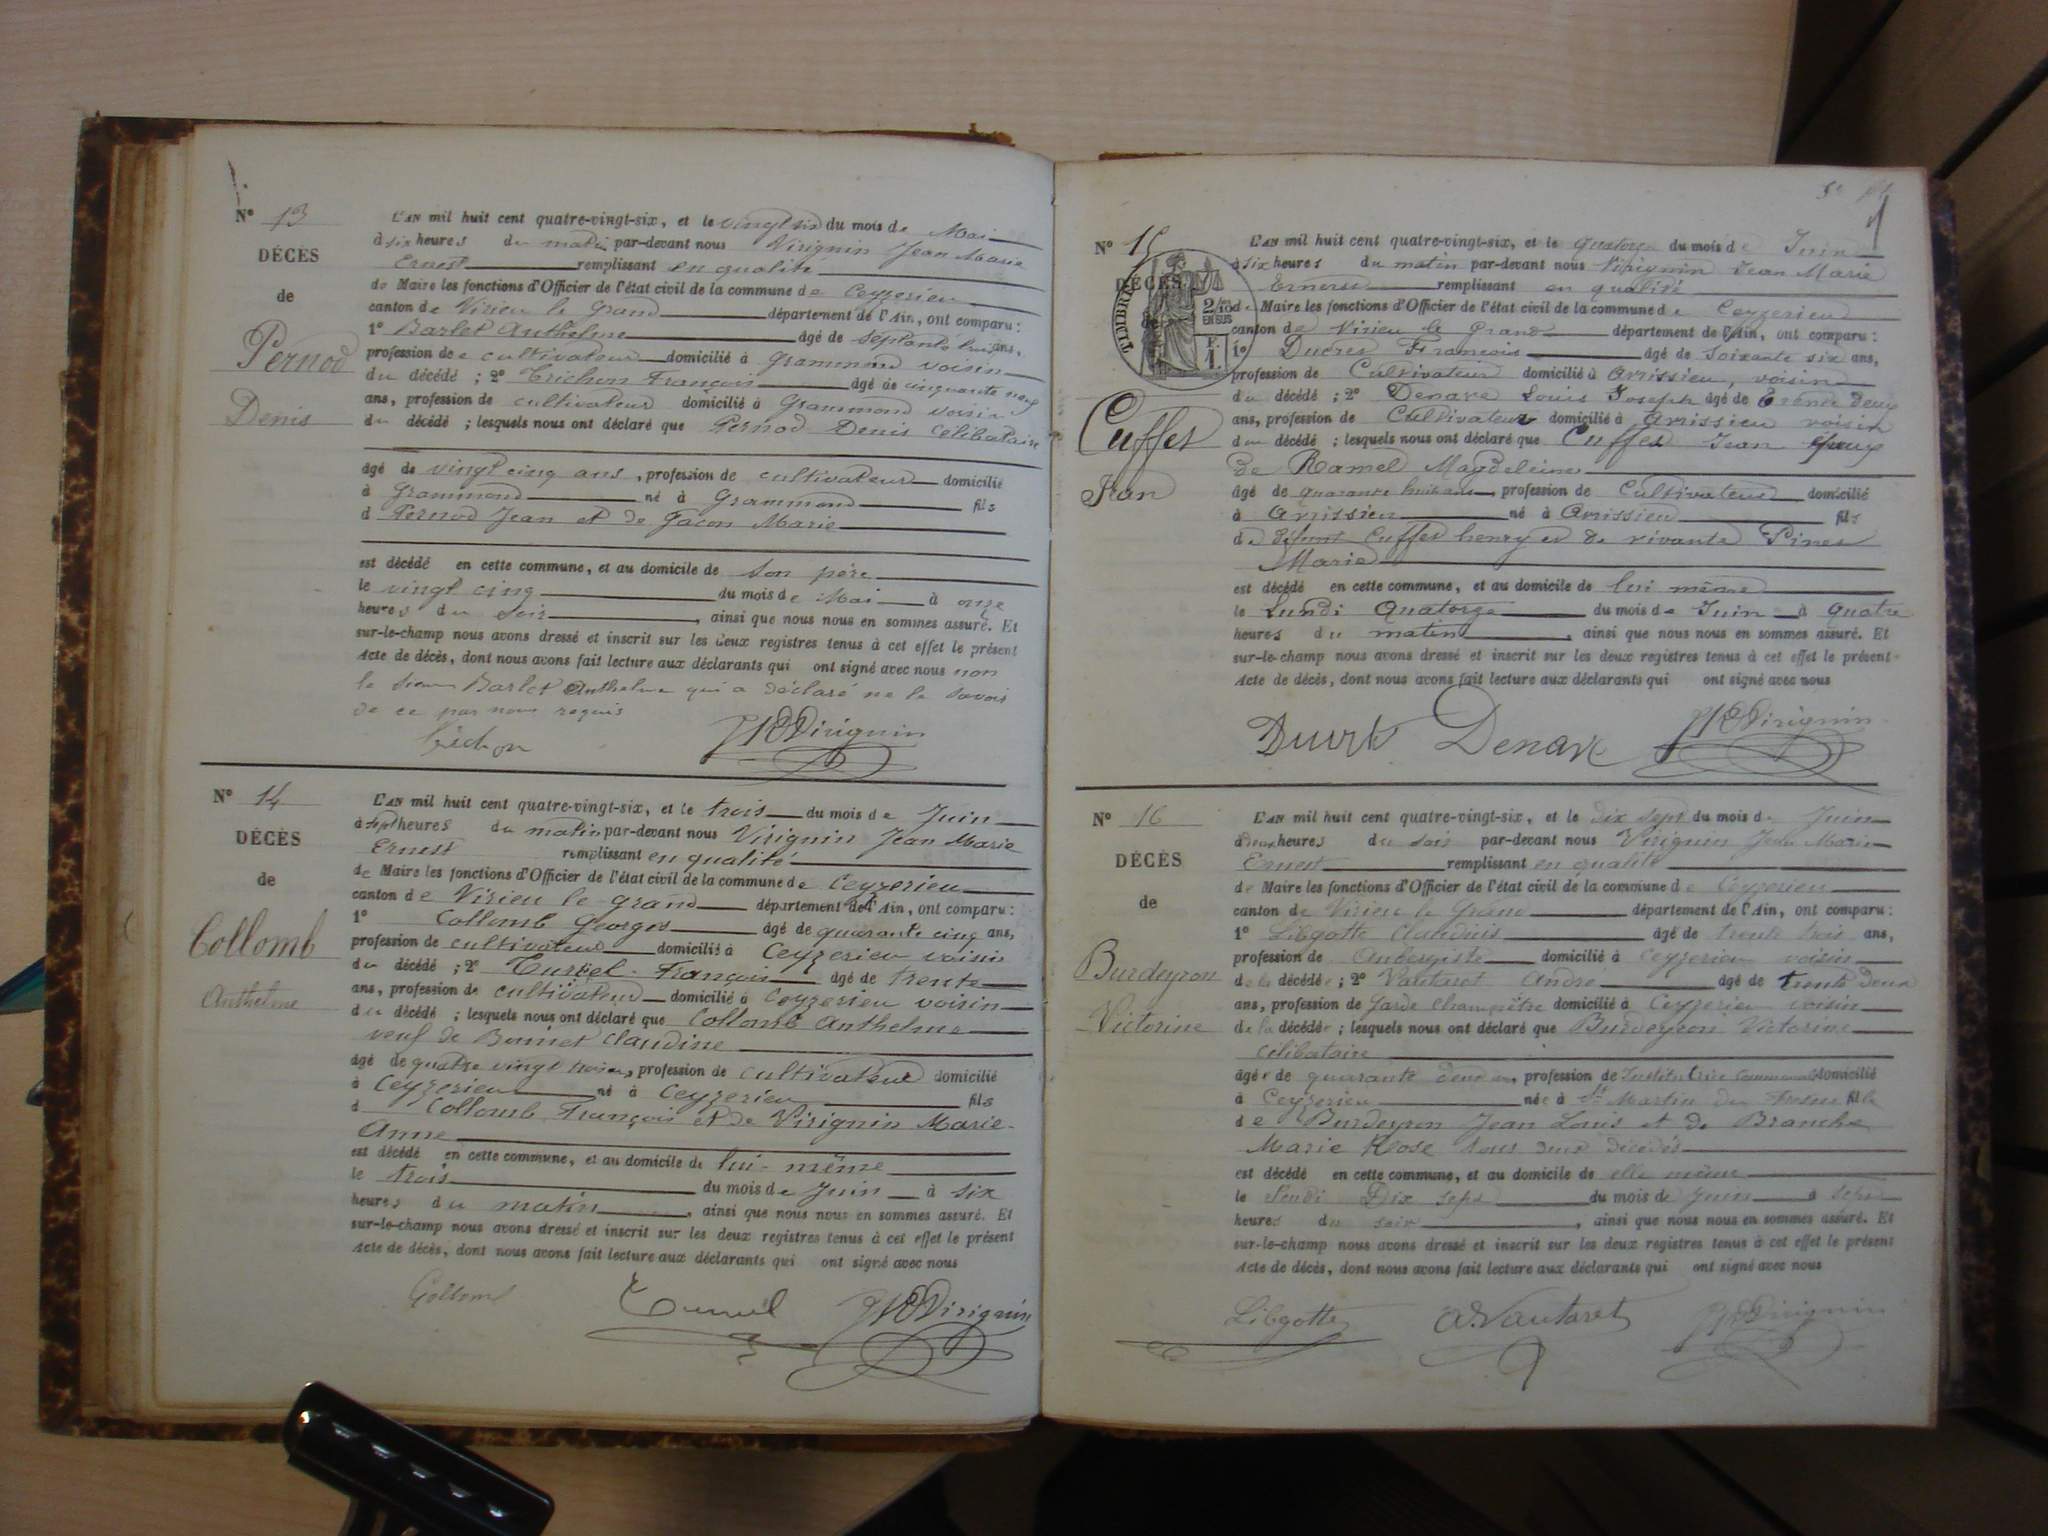 N° 13
DÉCÈS
de
Pernod
Denis
L'AN mil huit cent quatre-vingt-six, et le vingt six du mois de Mai
à six heures du matin par-devant nous Virignin Jean Marie
Ernest remplissant en qualité
de Maire les fonctions d'Officier de l'état civil de la commune de Ceyzerieu
canton de Virieu le Grand département de l'Ain, ont comparu :
1° Barlet Anthelme âgé de septante huit ans,
profession de cultivateur domicilié à Grammond voisin
du décédé ; 2° Trichon François âgé de cinquante neuf
ans, profession de cultivateur domicilié à Grammond voisin
du décédé ; lesquels nous ont déclaré que Pernod Denis célibataire
âgé de vingt cinq ans, profession de cultivateur domicilié
à Grammond né à Grammond fils
d Pernod Jean et de Facon Marie
est décédé en cette commune, et au domicile de son père
le vingt cinq du mois de Mai à onze
heures du soir, ainsi que nous nous en sommes assuré. Et
sur-le-champ nous avons dressé et inscrit sur les deux registres tenus à cet effet le présent
Acte de décès, dont nous avons fait lecture aux déclarants qui ont signé avec nous non
le sieur Barlet Anthelme qui a déclaré ne le savoir
de ce par nous requis
Trichon Virignin
N° 14
DÉCÈS
de
Collomb
Anthelme
L'AN mil huit cent quatre-vingt-six, et le trois du mois de Juin
à sept heures du matin par-devant nous Virignin Jean Marie
Ernest remplissant en qualité
de Maire les fonctions d'Officier de l'état civil de la commune de Ceyzerieu
canton de Virieu le grand département de l'Ain, ont comparu :
1° Collomb Georges âgé de quarante cinq ans,
profession de cultivateur domicilié à Ceyzerieu voisin
du décédé ; 2° François âgé de trente
ans, profession de cultivateur domicilié à Ceyzerieu voisin
du décédé ; lesquels nous ont déclaré que Collomb Anthelme
veuf de Bonnet Claudine
âgé de quatre vingt trois, profession de cultivateur domicilié
à Ceyzerieu né à Ceyzerieu fils
d Collomb François et de Virignin Marie-
Anne
est décédé en cette commune, et au domicile de lui-même
le trois du mois de Juin à six
heures du matin, ainsi que nous nous en sommes assuré. Et
sur-le-champ nous avons dressé et inscrit sur les deux registres tenus à cet effet le présent
Acte de décès, dont nous avons fait lecture aux déclarants qui ont signé avec nous
Collomb Virignin
N° 15
DÉCÈS
de
TIMBRE
2/10
EN SUS
F.
1.
Cuffet
Jean
L'AN mil huit cent quatre-vingt-six, et le quatorze du mois de Juin
à six heures du matin par-devant nous Virignin Jean Marie
Ernest remplissant en qualité
de Maire les fonctions d'Officier de l'état civil de la commune de Ceyzerieu
canton de Virieu le Grand département de l'Ain, ont comparu :
1° Ducret François âgé de soixante six ans,
profession de Cultivateur domicilié à Avrissieu, voisin
du décédé ; 2° Denare Louis Joseph âgé de trente deux
ans, profession de Cultivateur domicilié à Avrissieu voisin
du décédé ; lesquels nous ont déclaré que Cuffet Jean époux
de Ramel Magdeleine
âgé de quarante huit ans, profession de Cultivateur domicilié
à Avrissieu né à Avrissieu fils
de défunt Cuffet henry et de vivante Pinet
Marie
est décédé en cette commune, et au domicile de lui même
le Lundi Quatorze du mois de Juin à quatre
heures du matin, ainsi que nous nous en sommes assuré. Et
sur-le-champ nous avons dressé et inscrit sur les deux registres tenus à cet effet le présent
Acte de décès, dont nous avons fait lecture aux déclarants qui ont signé avec nous
Ducret Denare Virignin
N° 16
DÉCÈS
de
Burdeyron
Victorine
L'AN mil huit cent quatre-vingt-six, et le dix sept du mois de Juin
à heures du soir par-devant nous Virignin Jean Marie
Ernest remplissant en qualité
de Maire les fonctions d'Officier de l'état civil de la commune de Ceyzerieu
canton de Virieu le Grand département de l'Ain, ont comparu :
1° Libgotte Claudius âgé de trente trois ans,
profession de Aubergiste domicilié à Ceyzerieu voisin
de la décédée ; 2° Vautaret André âgé de trente deux
ans, profession de Garde champêtre domicilié à Ceyzerieu voisin
de la décédée ; lesquels nous ont déclaré que Burdeyron Victorine
célibataire
âgée de quarante deux ans, profession de Institutrice communale domicilié
à Ceyzerieu née à St Martin du Fresne fille
de Burdeyron Jean Louis et de Branche
Marie Rose tous deux décédés
est décédé en cette commune, et au domicile de elle même
le Jeudi Dix sept du mois de Juin à sept
heures du soir, ainsi que nous nous en sommes assuré. Et
sur-le-champ nous avons dressé et inscrit sur les deux registres tenus à cet effet le présent
Acte de décès, dont nous avons fait lecture aux déclarants qui ont signé avec nous
Libgotte A. Vautaret Virignin